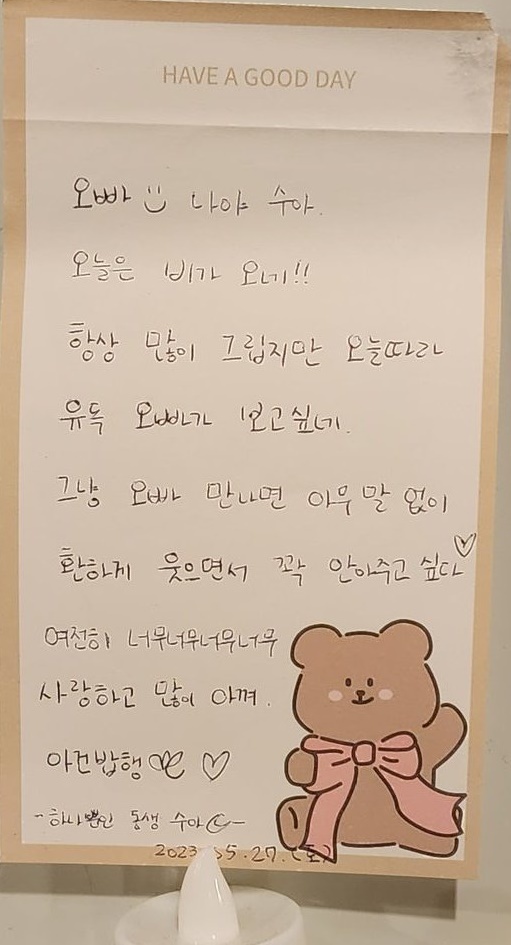 HAVE A GOOD DAY
오빠 나야 수아.
오늘은 비가 오네!!
항상 많이 그립지만 오늘따라
유독 오빠가 보고싶네.
그냥 오빠 만나면 아무 말 없이
환하게 웃으면서 꽉 안아주고 싶다
여전히 너무너무너무너무
사랑하고 많이 아껴.
아건밥행
-하나뿐인 동생 수아-
2023. 5. 27. (토)